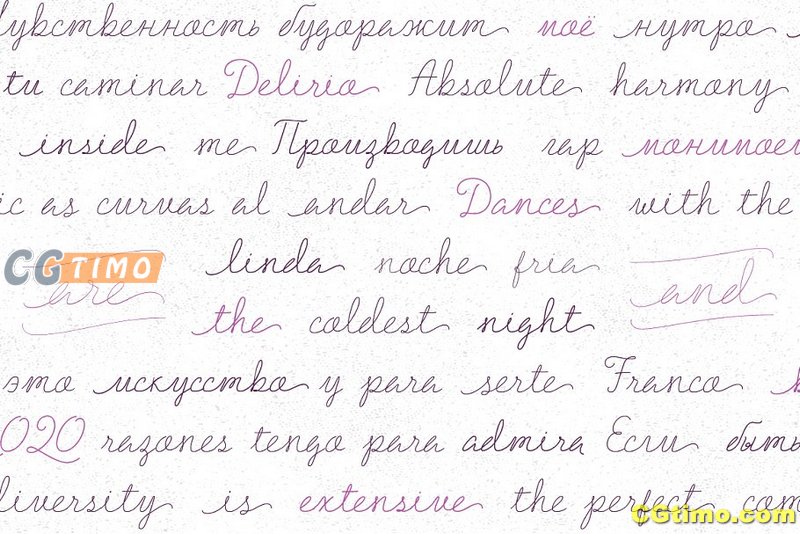 увственность будоражит моё нутро
tu caminar Delirio Absolute harmony
inside me Производишь гар
ёс as curvas al andar Dances with the
CG TIMO linda noche fria
are the coldest night and
это искусство y para serte Franco
2020 razones tengo para admira Если быть
diversity is extensive the perfect com
CGtimo.com